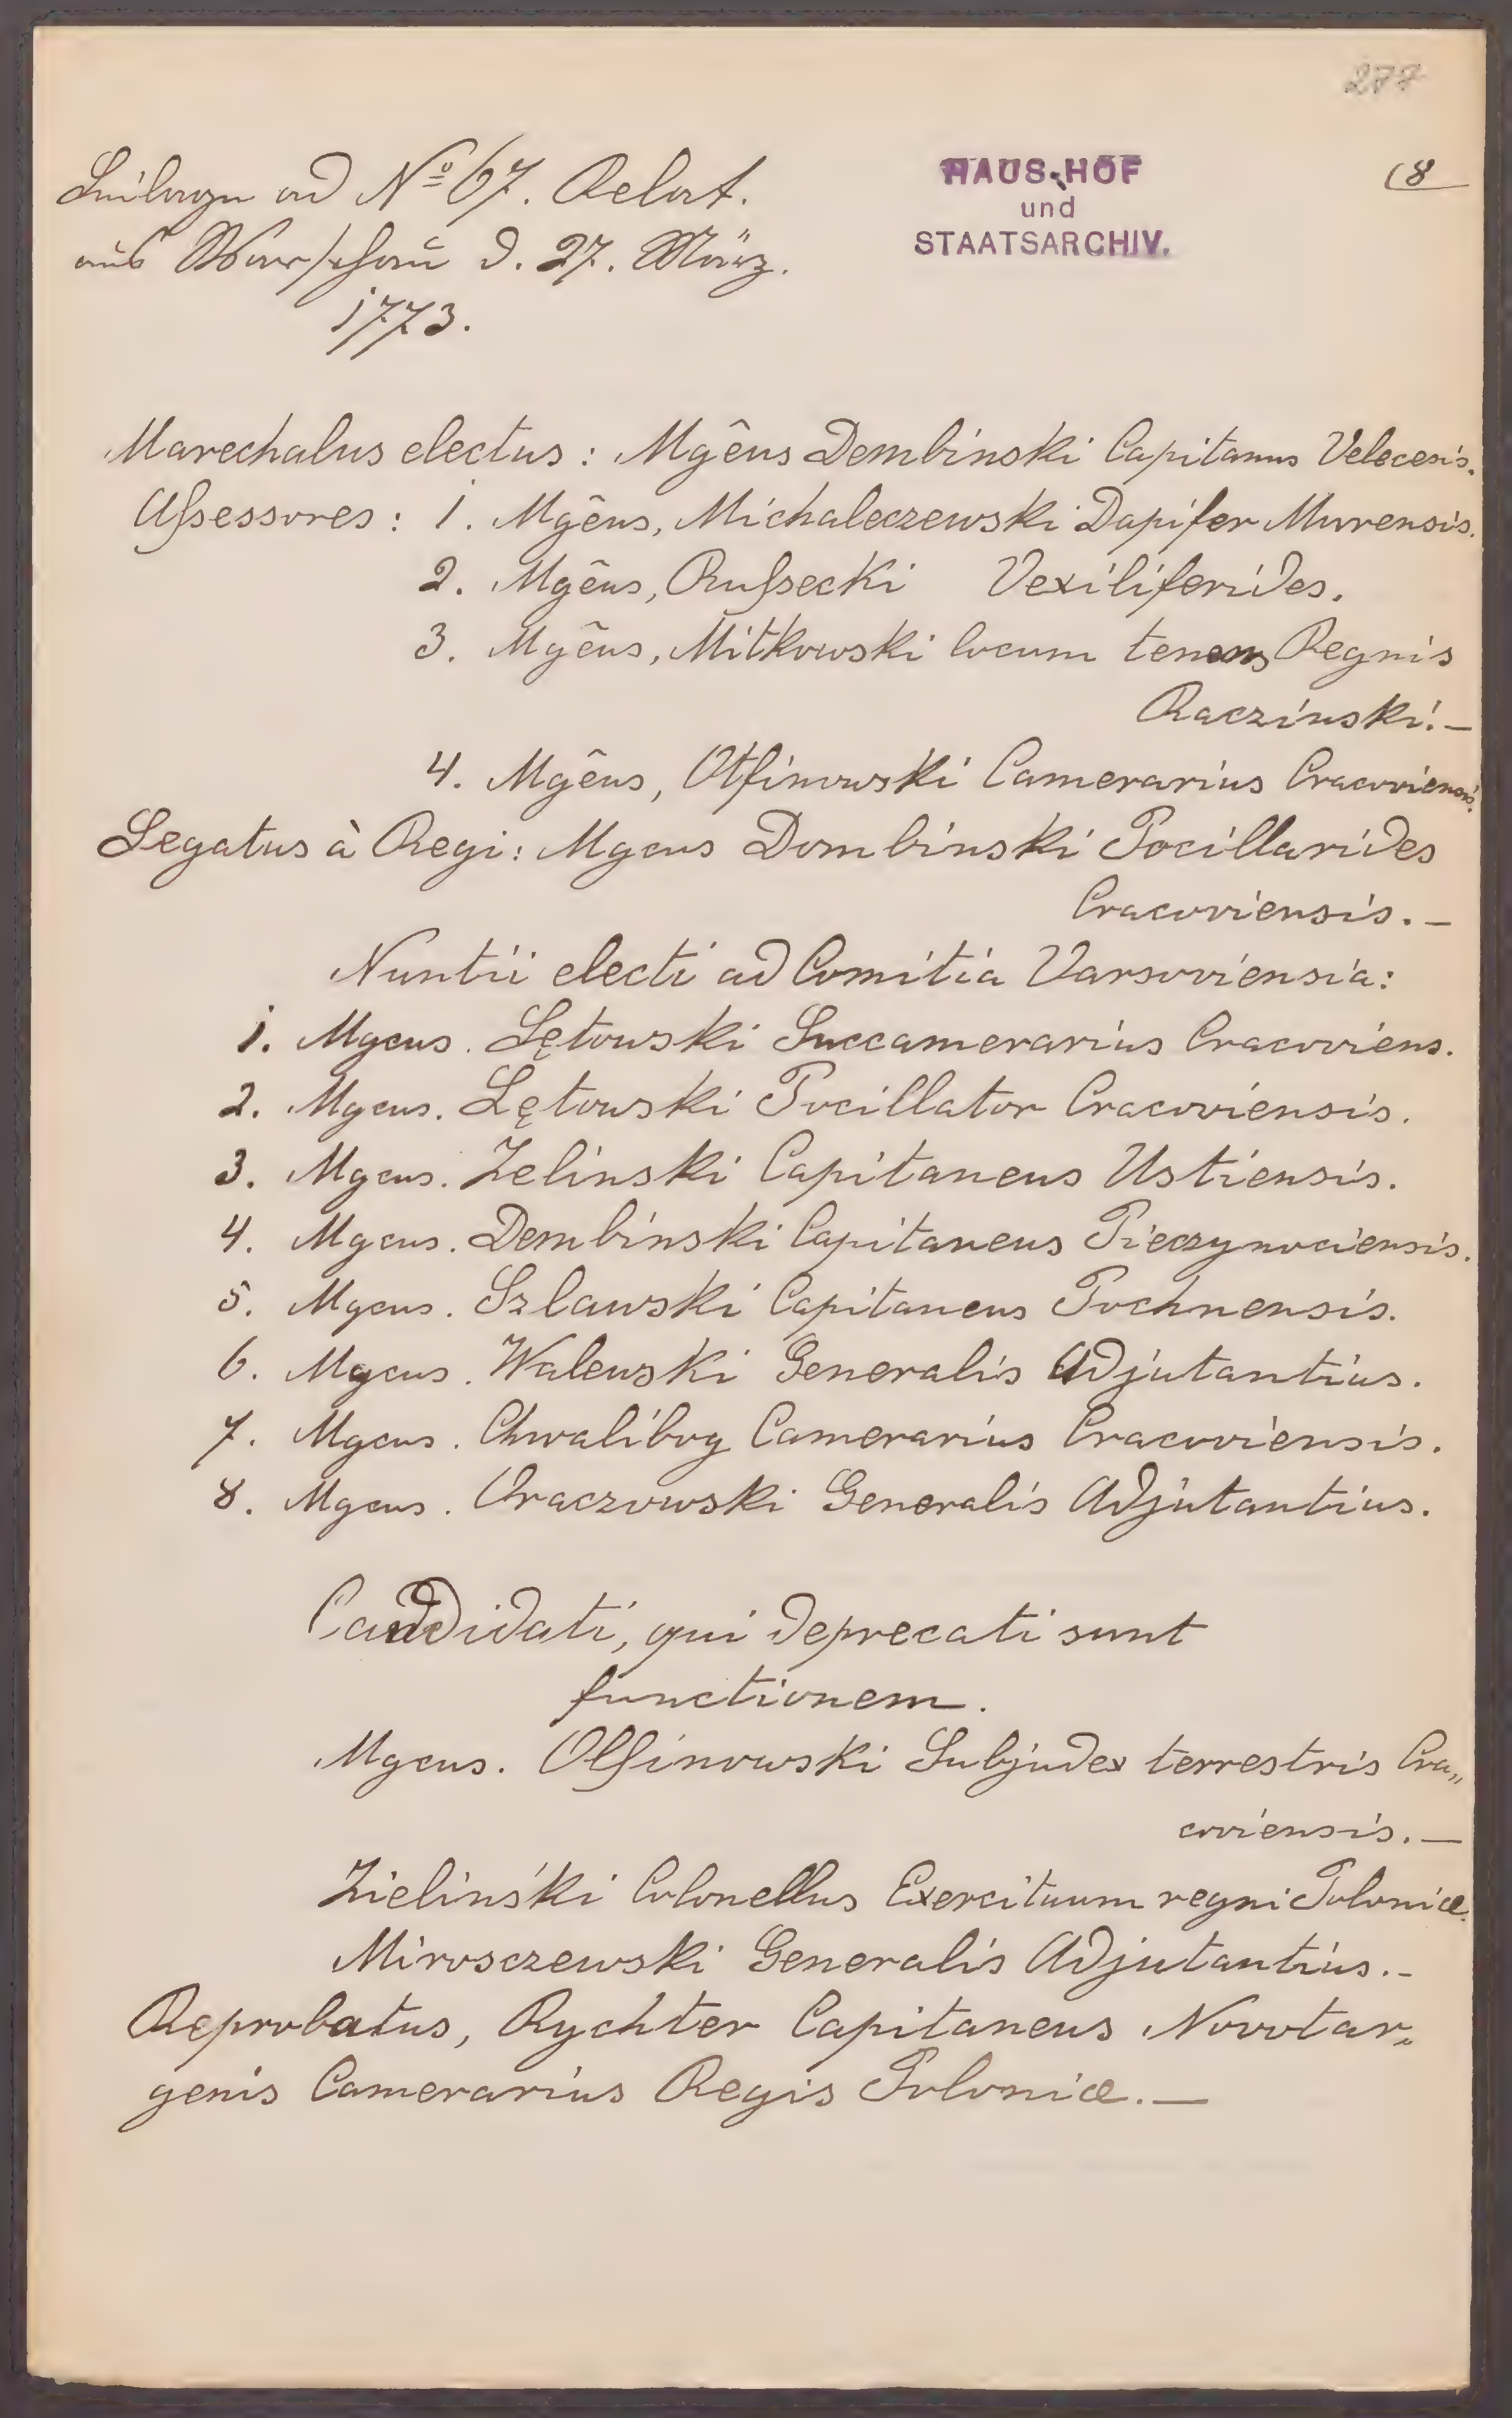 277
Beilage ad Nº 67. Relat.
HAUS-HOF
und
STAATSARCHIV.
(8
aus Warschau d. 27. März.
1773.
Marechalus electus: Mgêus Dembinski Capitanus Velecesis.
Assessores: 1. Mgêus, Michaleczewski Dapifer Murensis.
2. Mgêus, Russecki Vexiliferides.
3. Mgêus, Mitkowski locum tenens Regnis
Raczinski.—
4. Mgêus, Otfinowski Camerarius Cracoviensis.
Legatus à Regi: Mgcus Dombinski Pocillarides
Cracoviensis.—
Nuntii electi ad Comitia Varsoviensia:
1. Mgcus. Lętowski Succamerarius Cracoviens.
2. Mgcus. Lętowski Pocillator Cracoviensis.
3. Mgcus. Zelinski Capitaneus Ustiensis.
4. Mgcus. Dembinski Capitaneus Pieczynociensis.
5. Mgcus. Szlawski Capitaneus Pochnensis.
6. Mgcus. Walewski Generalis Adjutantius.
7. Mgcus. Chwalibog Camerarius Cracoviensis.
8. Mgcus. Oraczowski Generalis Adjutantius.
Candidati, qui deprecati sunt
functionem.
Mgcus. Olfinowski Subjudex terrestris Cra„
coviensis.—
Zielinśki Colonellus Exercituum regni Poloniæ.
Mirosczewski Generalis Adjutantius.-
Reprobatus, Rychter Capitaneus Novotar„
genis Camerarius Regis Poloniæ.—